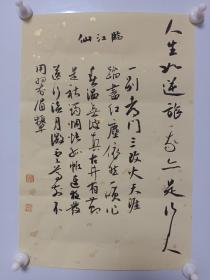 人生如逆旅我亦是行人
臨江仙
一别都门三改火天涯
踏盡红塵依然一笑作
春温無波真古井有節
是秋筠惆怅孤帆連夜發
送行淡月微雲尊前不
用翠眉颦